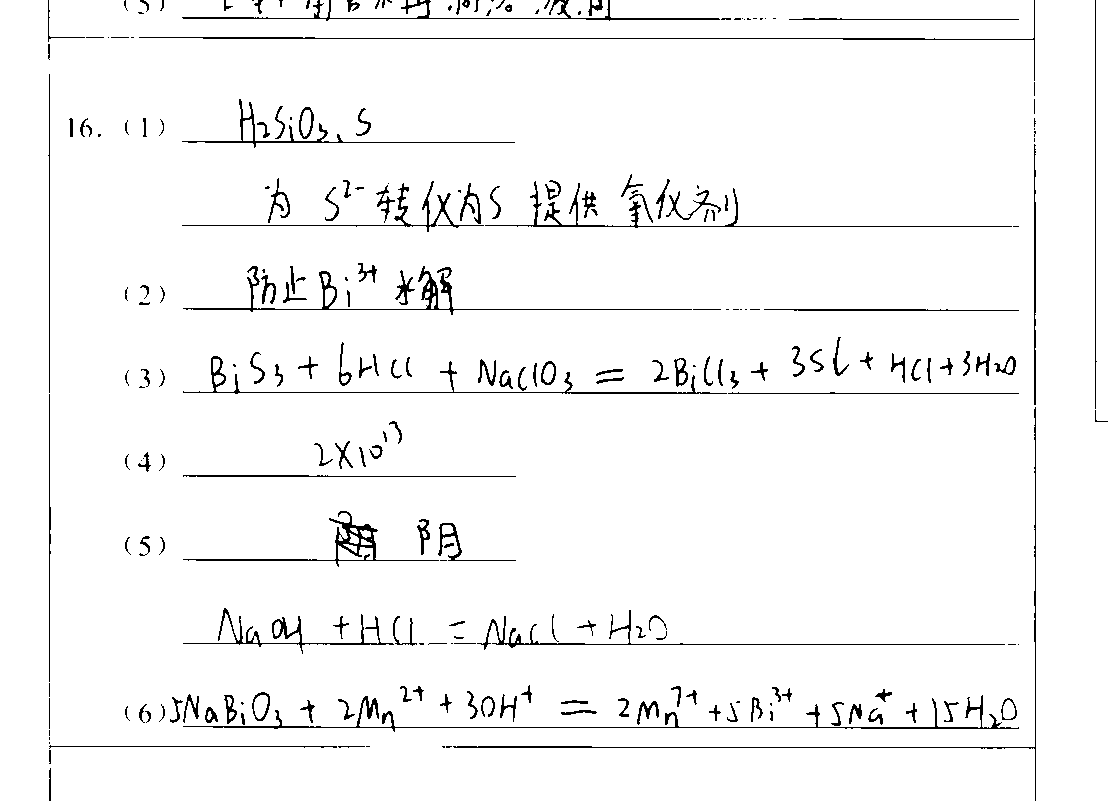 16. (1) H₂SiO₃、S
为 S²⁻转化为S 提供 氧化剂
(2) 防止Bi³⁺水解
(3) BiS₃ + 6HCl + NaClO₃ = 2BiCl₃ + 3S↓ + HCl + 3H₂O
(4) 2×10¹³
(5) 阴
NaOH + HCl = NaCl + H₂O
(6) 5NaBiO₃ + 2Mn²⁺ + 30H⁺ = 2Mn⁷⁺ + 5Bi³⁺ + 5Na⁺ + 15H₂O